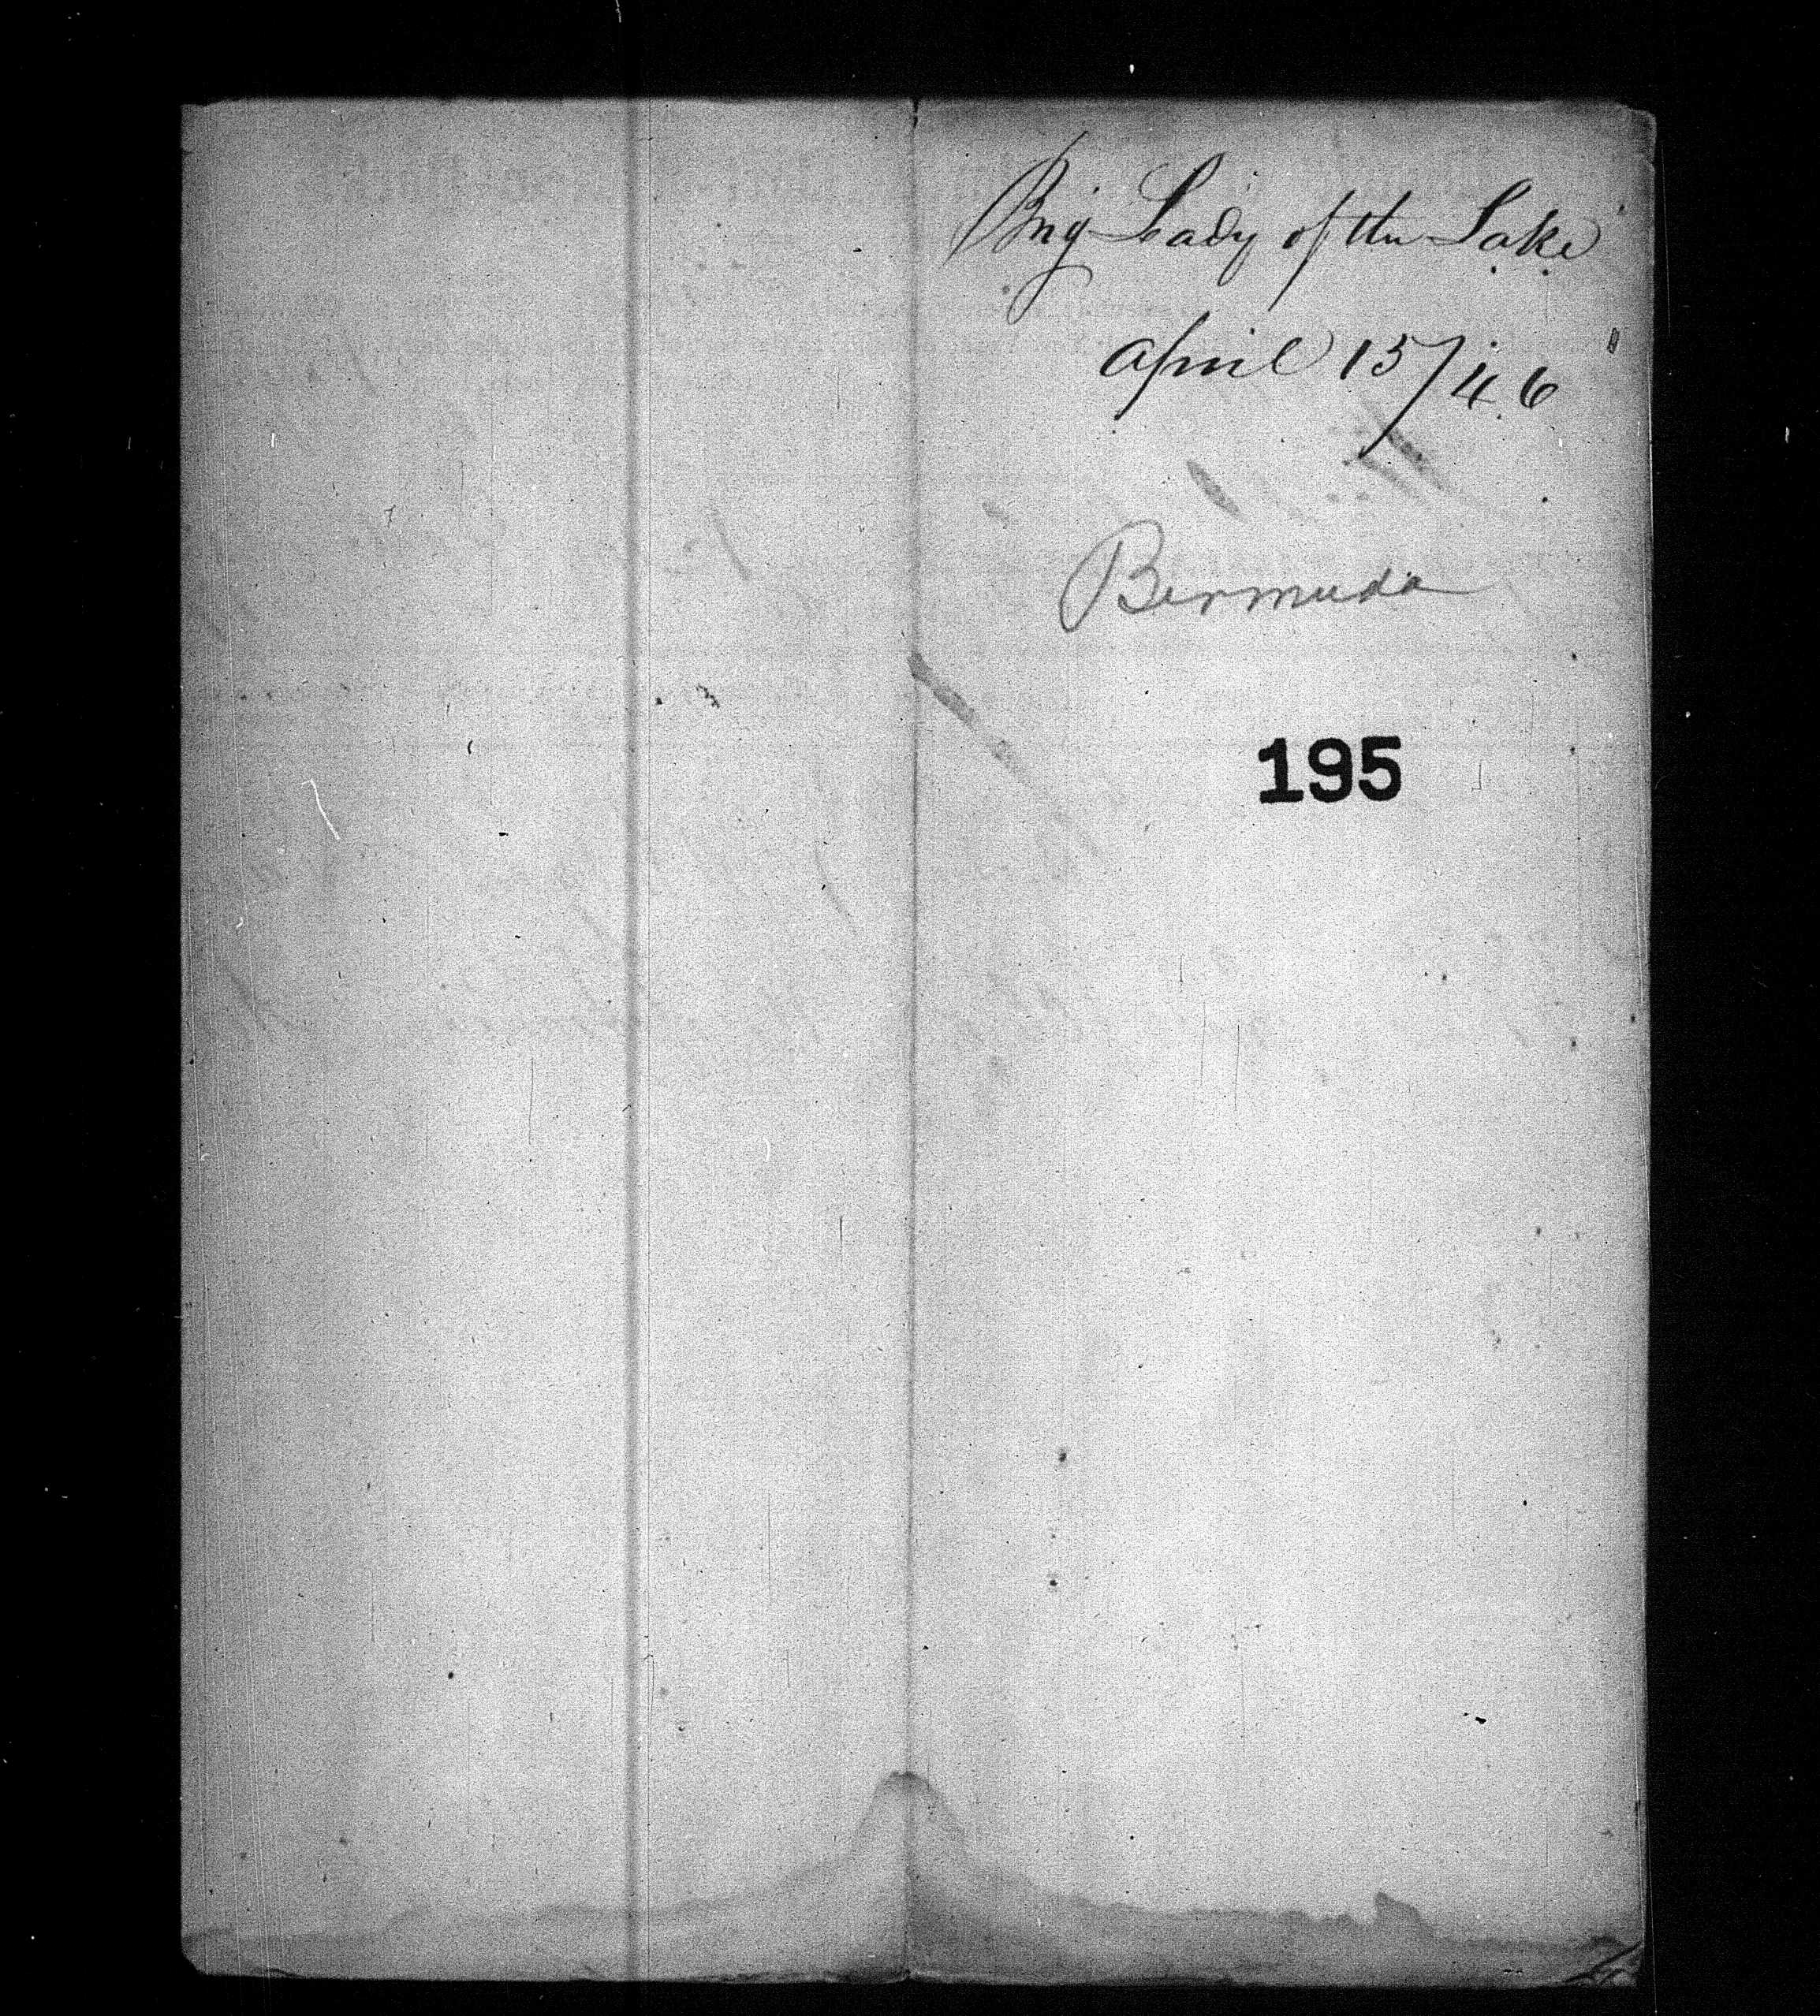 Brig Lady of the Lake
April 15/46
Bermuda
195